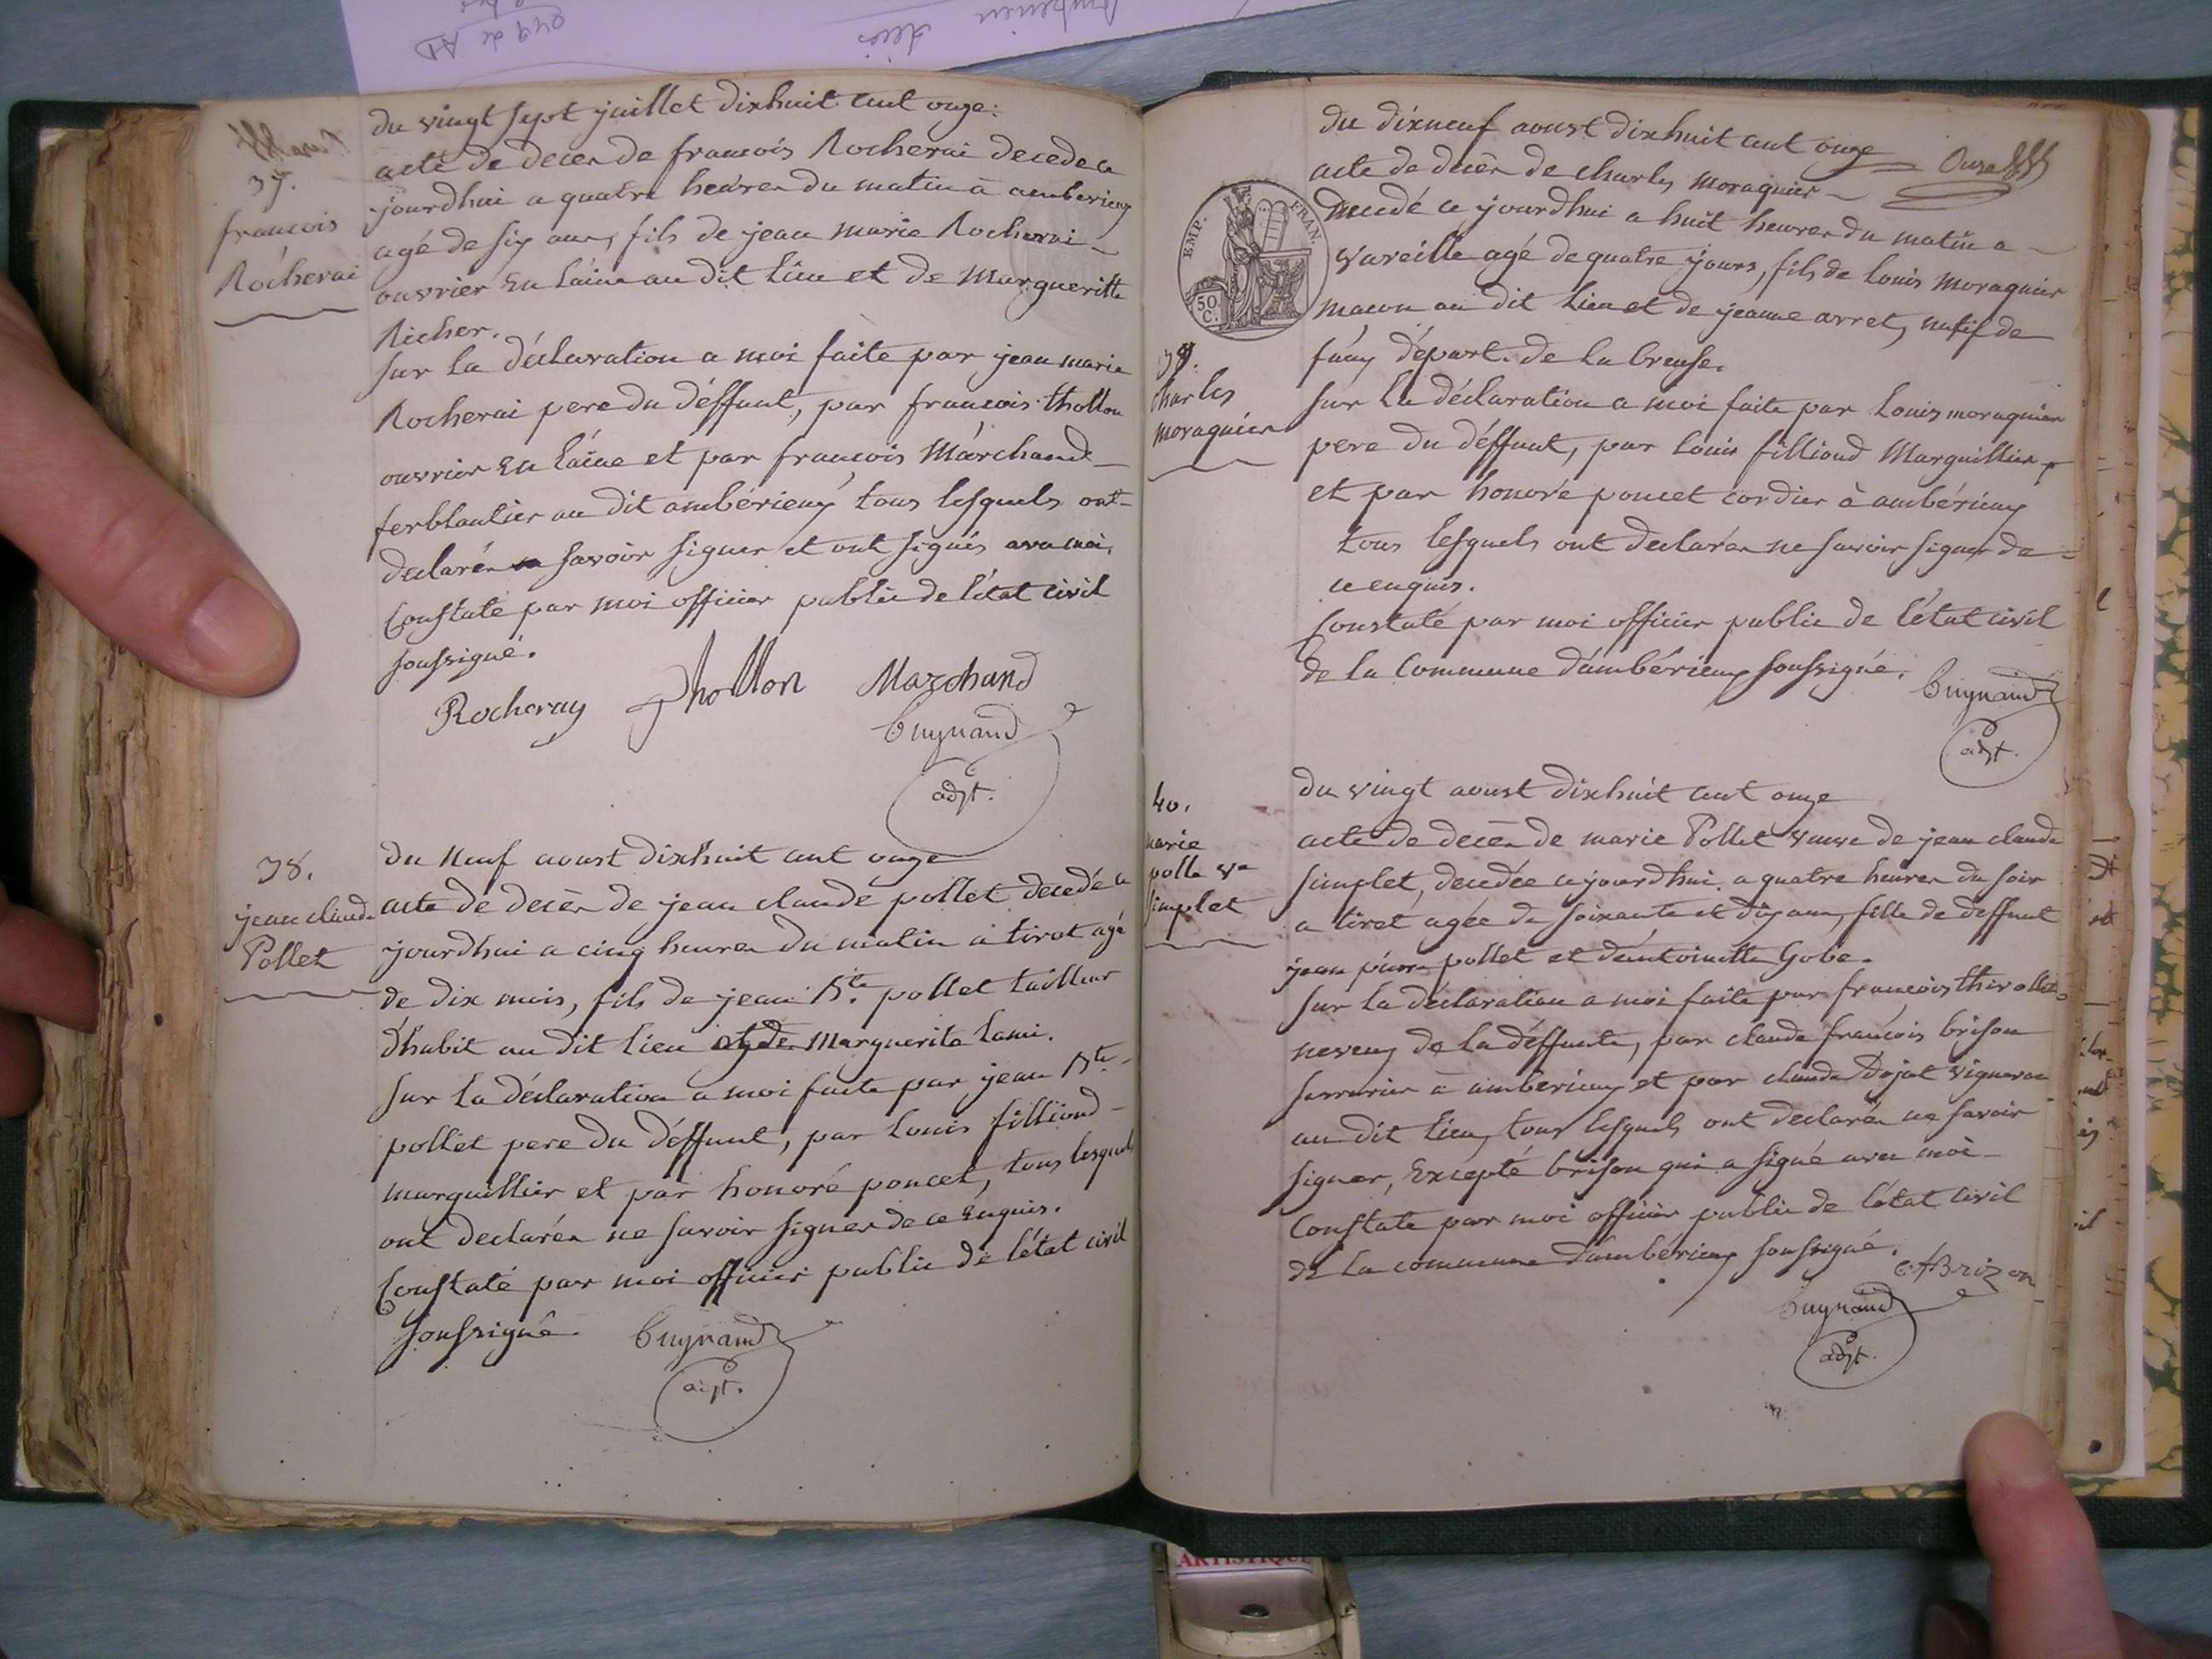 37.
francois
Rocherai
du vingt sept juillet dixhuit cent onze.
acte de decès de francois Rocherai decede ce
jourdhui a quatre heures du matin à amberieux
agé de six ans, fils de jean marie Rocherai
ouvrier en laine au dit lieu et de Margueritte
Richer.
sur la déclaration a moi faite par jean marie
Rocherai pere du déffunt, par francois thollon
ouvrier en laine et par francois Marchand
ferblantier au dit ambérieux tous lesquels ont
declarés savoir signer et ont signés avec moi,
Constaté par moi officier public de l'état civil
soussigné.
Rocheray thollon Marchand
Cuynand
adjt.
38.
jean claude
Pollet
du Neuf aoust dixhuit cent onze
acte de decès de jean claude pollet decedé ce
jourdhui a cinq heures du matin à tiret agé
de dix mois, fils de jean Bte. pollet tailleur
d'habit au dit lieu et de Marguerite Lami.
sur la déclaration a moi faite par jean Bte.
pollet pere du déffunt, par Louis filliond
marguillier et par honoré poncet, tous lesquels
ont declarés ne savoir signer de ce Enquis.
Constaté par moi officier public de l'état civil
soussigné. Cuynand
adjt.
du dixneuf aoust dixhuit cent onze
acte de decès de charles Moraguier
decedé ce jourdhui a huit heures du matin a
Vareille agé de quatre jours, fils de Louis Moraguier
macon au dit lieu et de jeanne arret, natif de
départ. de la Creuse.
EMP. FRAN.
50 C.
39.
charles
moraguier
sur la déclaration a moi faite par Louis moraguier
pere du déffunt, par Louis filliond Marguillier
et par honoré poncet cordier à ambérieux
tous lesquels ont declarés ne savoir signer de
ce enquis.
Constaté par moi officier public de l'état civil
de la Commune d'ambérieux soussigné.
Cuynand
adjt.
40.
marie
polle Ve
simplet
du vingt aoust dixhuit cent onze
acte de decès de marie Pollet veuve de jean claude
simplet, decedée cejourdhui a quatre heures du soir
a tiret agée de soixante et dix ans, fille de deffunt
jean pierre pollet et d'antoinette Gobe.
sur la déclaration a moi faite par francois thivollet
neveux de la déffunte, par claude francois brison
serrurier à amberieux et par claude Dojat vigneron
au dit lieu, tous lesquels ont declarés ne savoir
signer, Excepté brison qui a signé avec moi
Constaté par moi officier public de l'état civil
de la commune d'ambérieux soussigné.
cfBrizon
Cuynand
adjt.
ARTISTIQUE